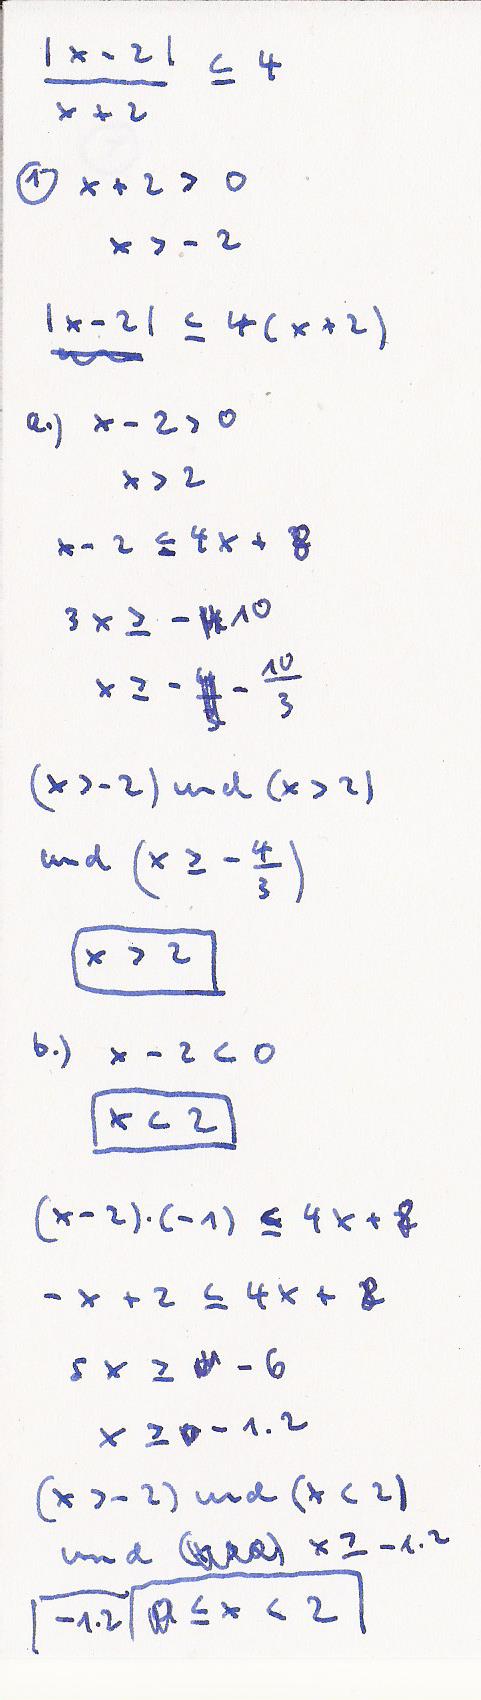 |x - 2| / x + 2 ≤ 4
① x + 2 > 0
x > - 2
|x - 2| ≤ 4 (x + 2)
a.) x - 2 > 0
x > 2
x - 2 ≤ 4x + 8
3x ≥ - 10
x ≥ - - 10/3
(x > -2) und (x > 2)
und (x ≥ - 4/3)
x > 2
b.) x - 2 < 0
x < 2
(x - 2) · (-1) ≤ 4x + 8
- x + 2 ≤ 4x + 8
5x ≥ - 6
x ≥ - 1.2
(x > -2) und (x < 2)
und x ≥ -1.2
-1.2 ≤ x < 2